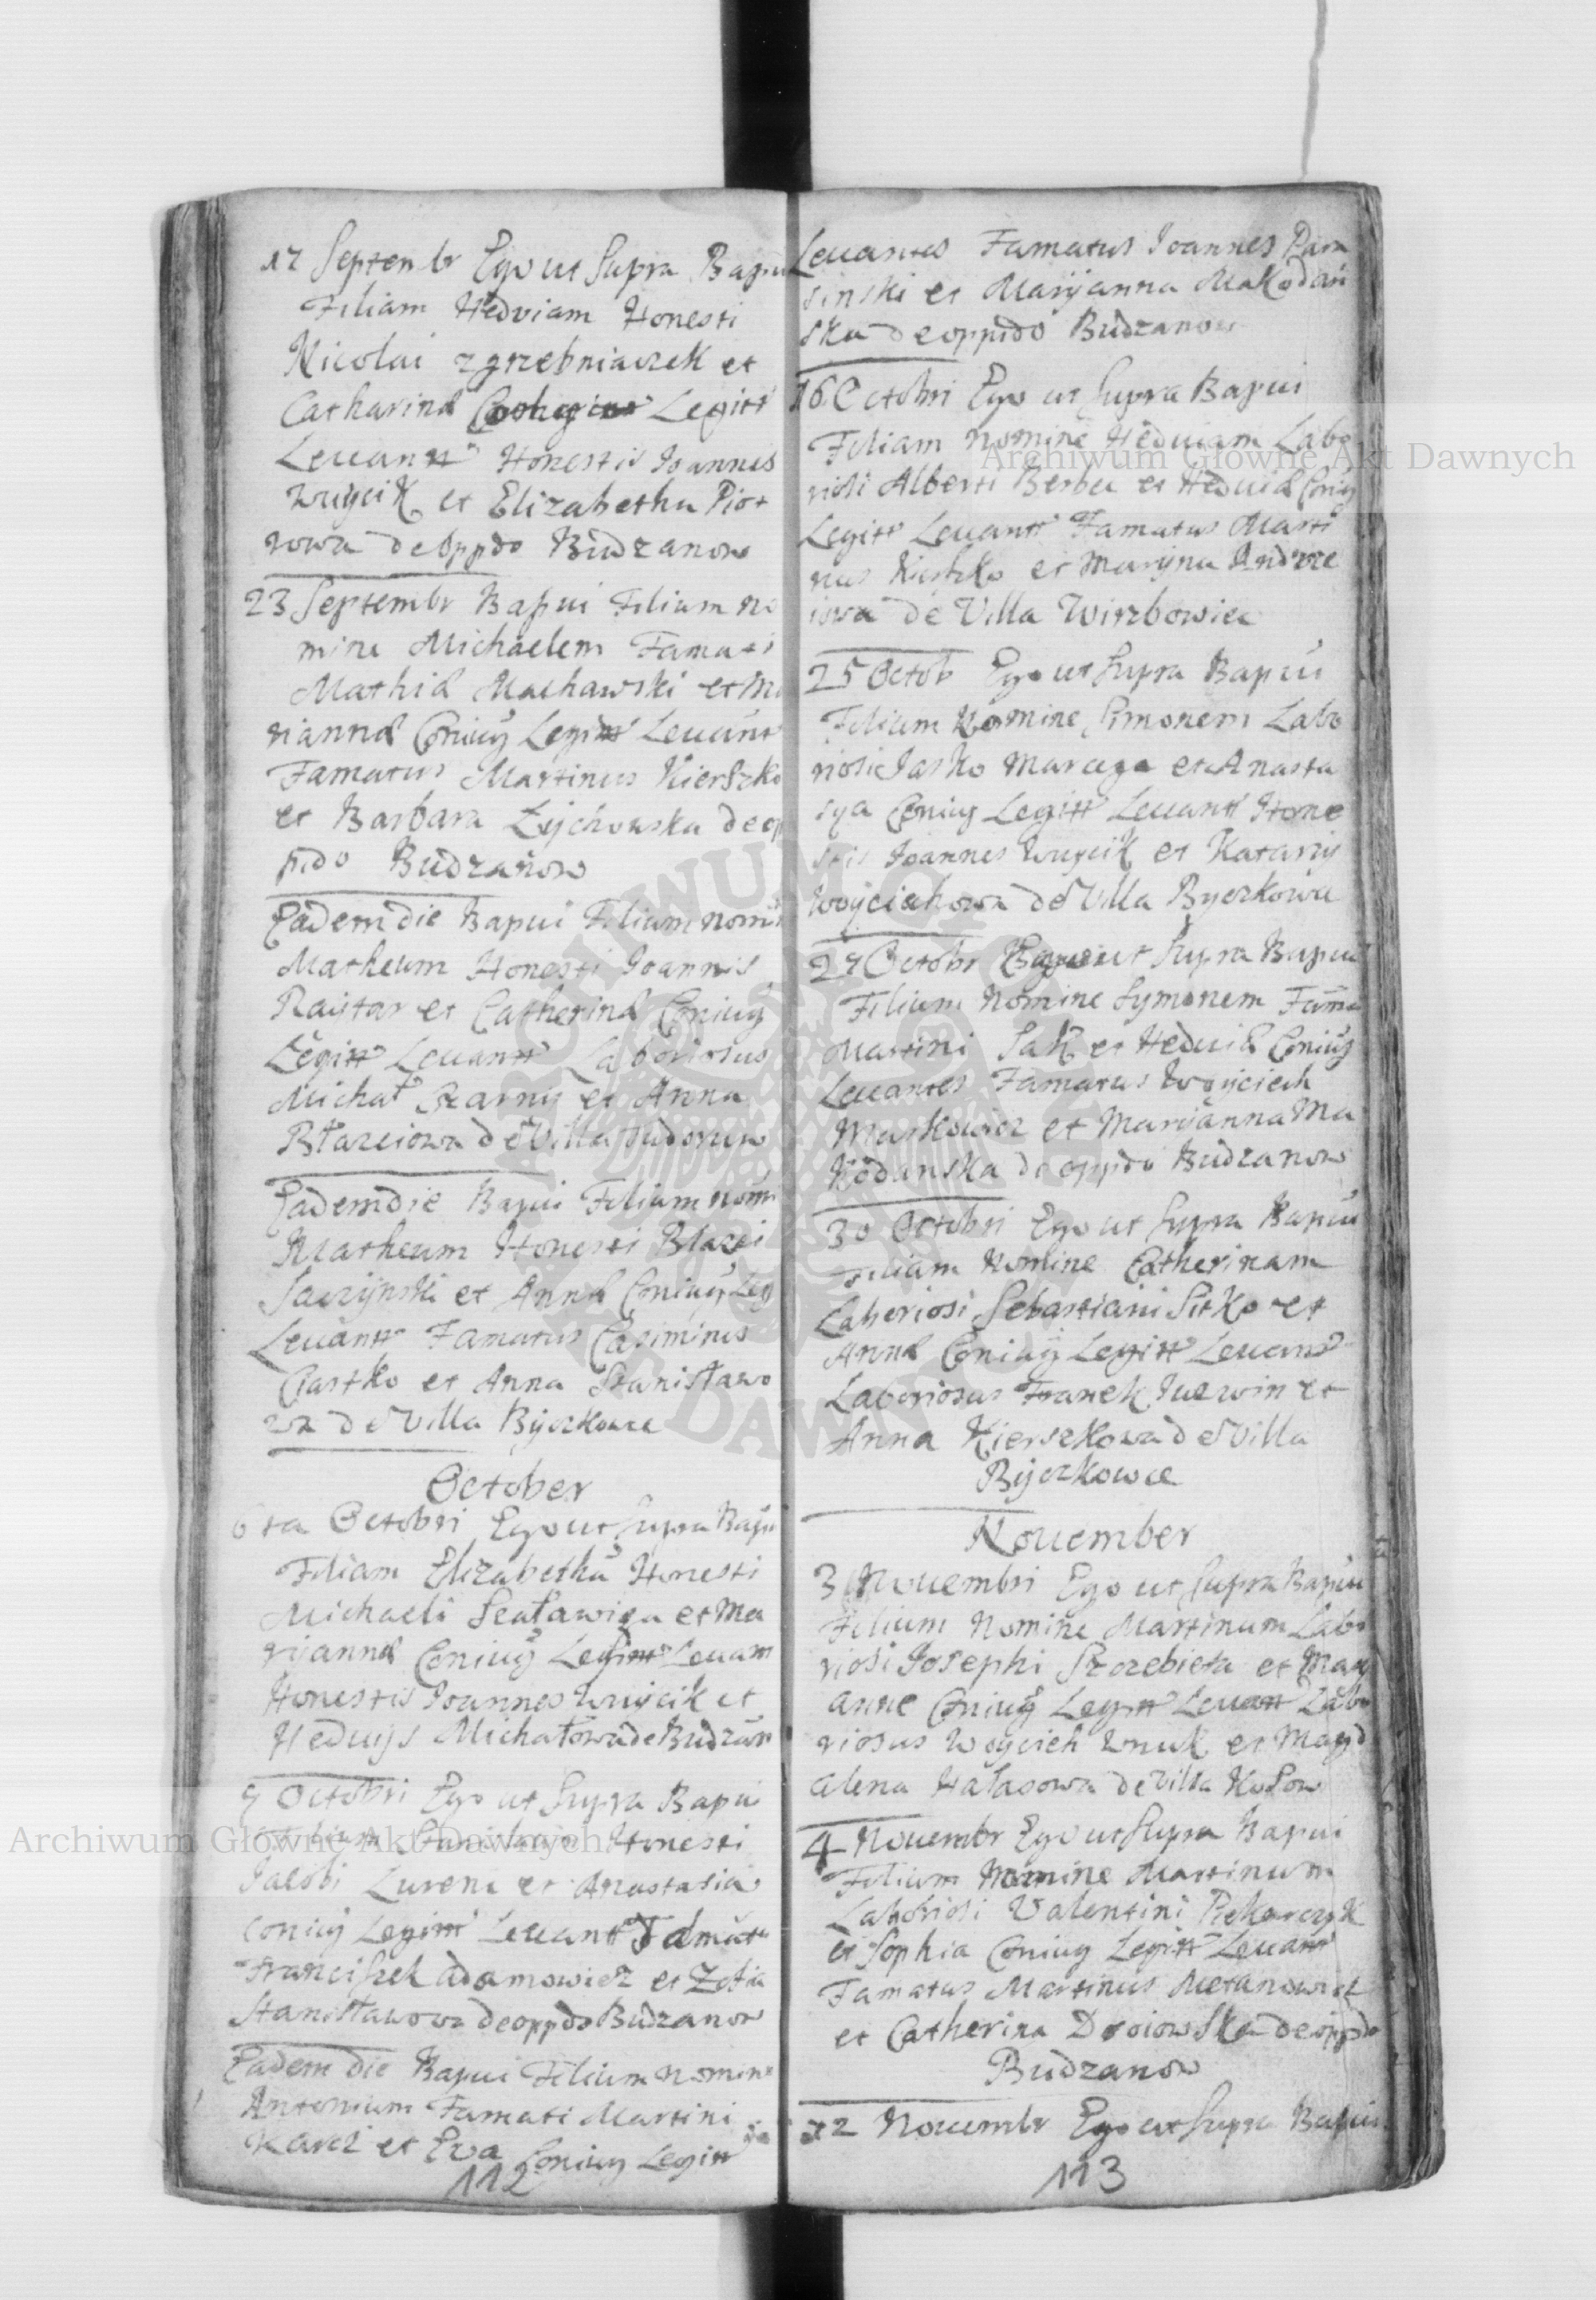 17 Septembr Ego ut Supra Bapui
Filiam Hedviam Honesti
Nicolai zgrzebniaczek et
Catharina Legitt
Leuantt Honestis Joannes
Wuycik et Elizabetha Piot
rowa de Oppdo Budzanow
23 Septembr Bapui Filium no
mine Michaelem Famati
Mathia Machawski et Ma
rianna Coniug Legitt Leuant
Famatus Martinus Kierszko
et Barbara Zychowska de op
pido Budzanow
Eadem die Bapui Filium nomi
Matheum Honesti Joannis
Raytar et Catherina Coniug
Legitt Leuantt Laboriosus
Michał Czarny et Anna
Błazeiowa de Villa
Eadem die Bapui Filium nomi
Matheum Honesti Blazei
Saczynski et Anna Coniug Leg
Leuantt Famatus Casimirus
Ciastko et Anna Stanisławo
wa de Villa Byczkowce
October
6ta Octobri Ego ut Supra Bapu
Filiam Elizabetha Honesti
Michaeli et Ma
ryanna Coniug Legitt Leuant
Honestis Joannes Wuycik et
Hedwys Michałowa de Budzan
9 Octobri Ego ut Supra Bapui
Filium Honesti
Jacobi et Anastasia
Coniug Legitt Leuantt Famat
Franciszek Adamowicz et Zofia
Stanisławowa de oppdo Budzanow
Eadem die Bapui Filium nomine
Antonium Famati Martini
et Eva Coniug Legitt
112
Leuantes Famatus Joannes Para
sinski et Maryanna Makodan
ska de oppido Budzanow
16 Octobri Ego ut Supra Bapui
Filiam nomine Heduiam Labo
riosi Alberti Berbec et Heduia Coniug
Legitt Leuantt Famatus Marti
nus Kierszko et Maryna Andrze
iowa de Villa Wirzbowiec
25 Octob Ego ut Supra Bapui
Filium Nomine Simonem Labo
riosi Jasko Marcyga et Anasta
sya Coniug Legitt Leuantt Hone
stis Joannes Wuycik et Katarzy
Woyciechowa de Villa Byczkowce
27 Octobr Ego ut Supra Bapui
Filium Nomine Symonem Fama
Martini Sak et Heduia Coniug
Leuantes Famatus Woyciech
Markowicz et Maryanna Ma
kodanska de oppido Budzanow
30 Octobri Ego ut Supra Bapui
Filiam Nomine Catherinam
Laboriosi Sebastiani Sitko et
Anna Coniug Legitt Leuant
Laboriosus Franek et
Anna Kierszkowa de Villa
Byczkowce
Nouember
3 Nouembri Ego ut Supra Bapui
Filium Nomine Martinum Labo
riosi Josephi Szczebieta et Mary
anne Coniug Legitt Leuantt Labo
riosus Woyciech Wnuk et Magd
alena Hałasowa de Villa Kosow
4 Nouembr Ego ut Supra Bapui
Filium Nomine Martinum
Laboriosi Valentini Piekarczyk
et Sophia Coniug Legitt Leuantt
Famatus Martinus Metanowicz
et Catherina Droiowska de oppdo
Budzanow
12 Nouembr Ego ut Supra Bapui
113
Archiwum Główne Akt Dawnych
Archiwum Główne Akt Dawnych
ARCHIWUM GŁÓWNE AKT DAWNYCH